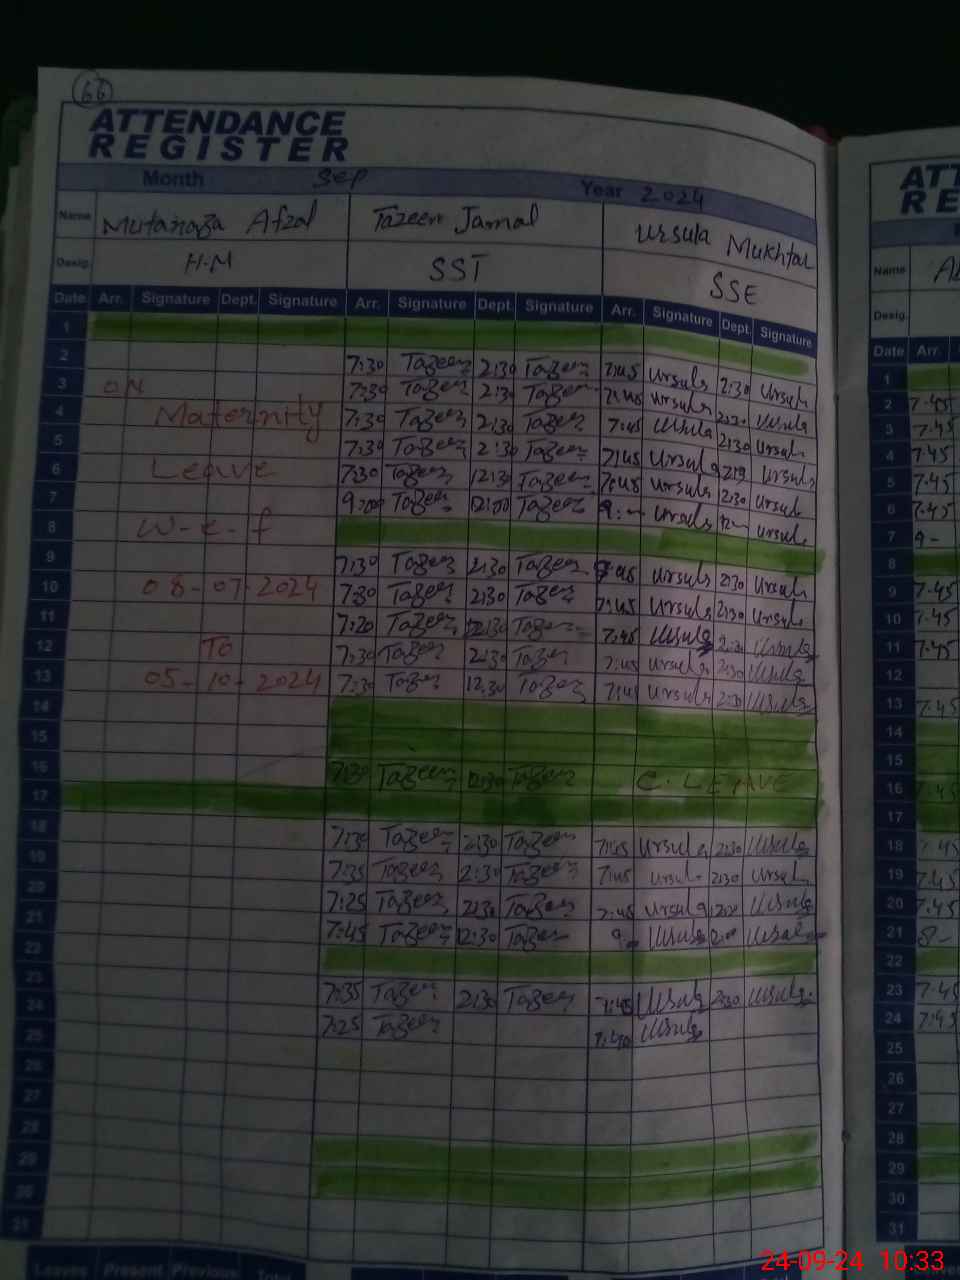 66
ATTENDANCE
REGISTER
Month Sep Year 2024
Name Tazeen Jamal Ursula Mukhtar
Desig. H.M SST SSE
Date Arr. Signature Dept. Signature Arr. Signature Dept. Signature Arr. Signature Dept. Signature
1
2 7:30 Tazeen 2:30 Tazeen 7:45 Ursula 2:30 Ursula
3 ON 7:30 Tazeen 2:30 Tazeen 7:45 Ursula 2:30 Ursula
4 Maternity 7:30 Tazeen 2:30 Tazeen 7:45 Ursula 2:30 Ursula
5 7:30 Tazeen 2:30 Tazeen 7:45 Ursula Ursula
6 Leave 7:30 Tazeen 12:30 Tazeen 7:45 Ursula 2:30 Ursula
7 9:00 Tazeen 12:00 Tazeen 9:- Ursula 12- Ursula
8 W-e-f
9 7:30 Tazeen 2:30 Tazeen 7:45 Ursula 2:30 Ursula
10 08-07-2024 7:30 Tazeen 2:30 Tazeen 7:45 Ursula 2:30 Ursula
11 7:20 Tazeen 2:30 Tazeen 7:45 Ursula 2:30 Ursula
12 To 7:30 Tazeen 2:30 Tazeen 7:45 Ursula 2:30 Ursula
13 05-10-2024 7:30 Tazeen 12:30 Tazeen 7:45 Ursula 2:30 Ursula
14
15
16 7:30 Tazeen 12:30 Tazeen C. LEAVE
17
18 7:30 Tazeen 2:30 Tazeen 7:45 Ursula 2:30 Ursula
19 7:35 Tazeen 2:30 Tazeen 7:45 Ursula 2:30 Ursula
20 7:25 Tazeen 2:30 Tazeen 7:45 Ursula Ursula
21 7:45 Tazeen 12:30 Tazeen 9- Ursula Ursula
22
23 7:35 Tazeen 2:30 Tazeen 7:45 Ursula 2:30 Ursula
24 7:25 Tazeen 7:40 Ursula
25
26
27
28
29
30
31
Leaves Present Total
ATT
RE
Name
Desig.
Date Arr.
1
2 7.45
3 7.45
4 7.45
5 7.45
6 7.45
7 9-
8
9 7.45
10 7.45
11 7.45
12
13 7.45
14
15
16 7.45
17
18 7.45
19 7.45
20 7.45
21 8-
22
23 7.45
24 7:45
25
26
27
28
29
30
31
24-09-24 10:33